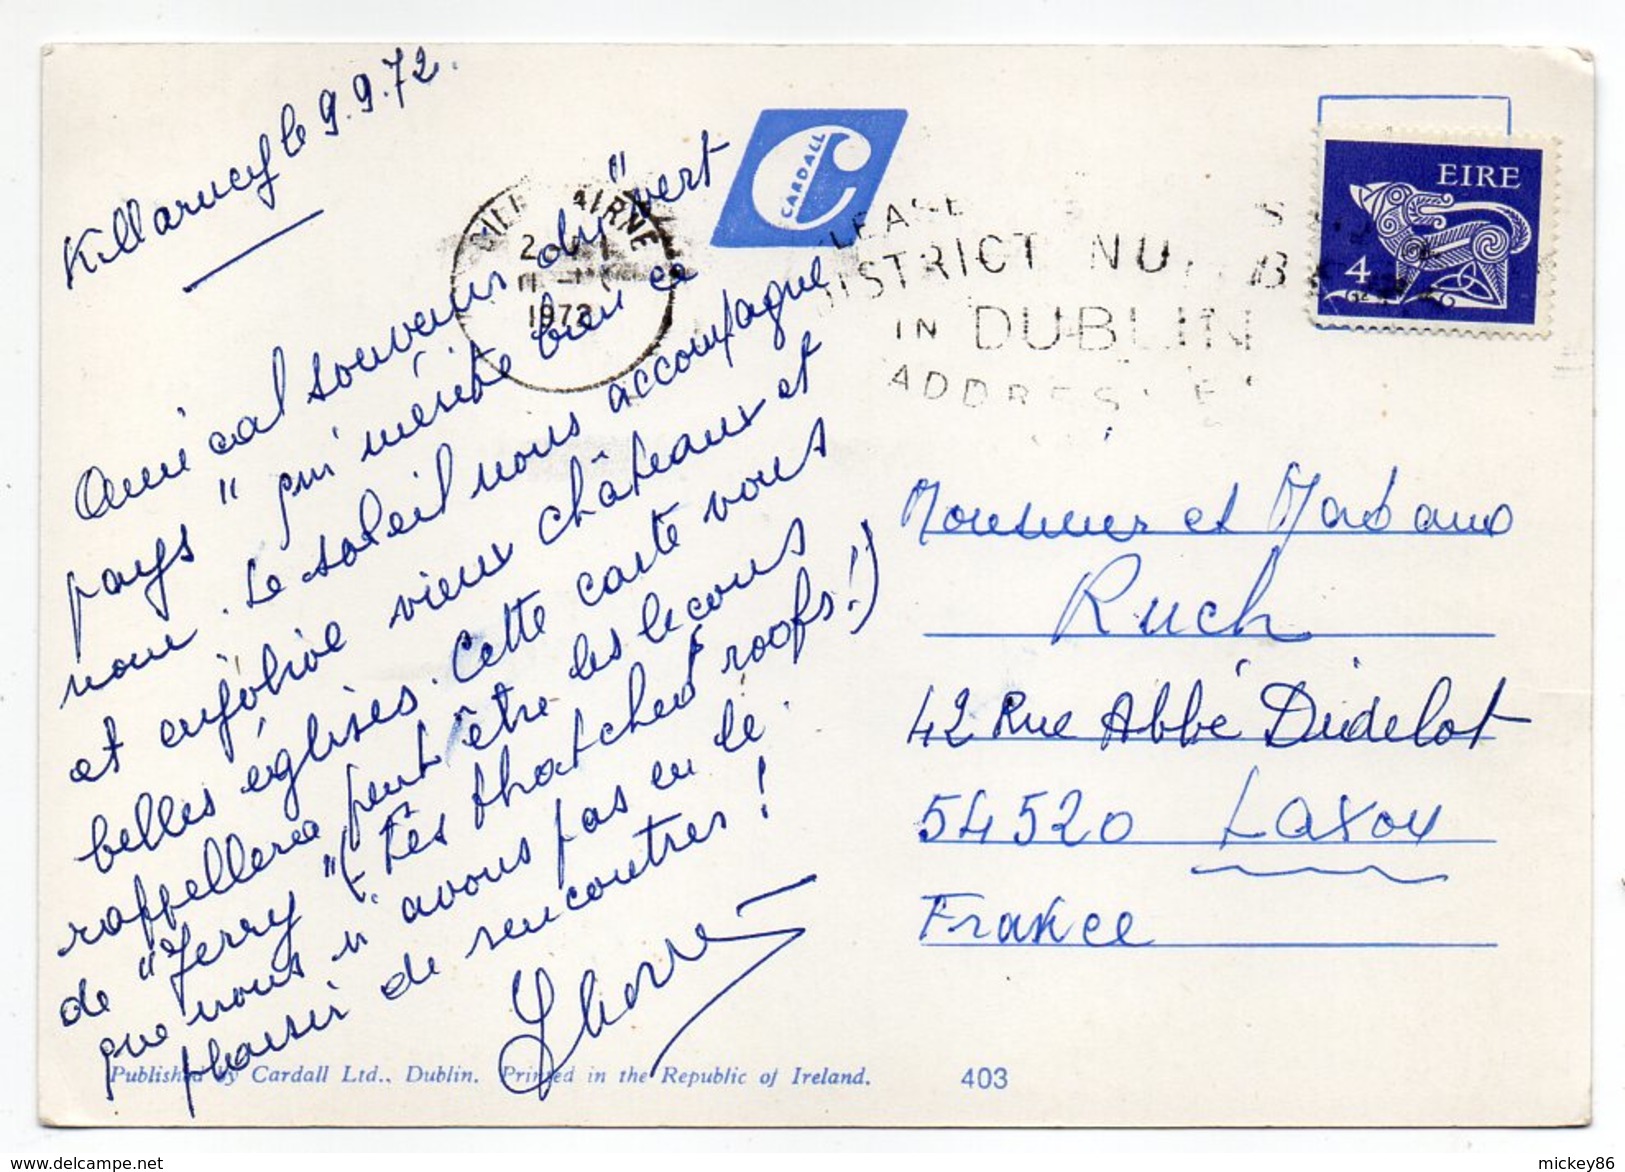 Killarney le 9.9.72.
Amical souvenir du "vert
pays" qui mérite bien ce
nom. Le soleil nous accompagne
et enjolive vieux châteaux et
belles églises. Cette carte vous
rappellera peut être les leçons
de "Jerry" (Les thatched roofs!)
que nous n'avons pas eu le
plaisir de rencontrer!
CARDALL
1972
PLEASE
DISTRICT NU
IN DUBLIN
EIRE
4
Monsieur et Madame
Ruch
42 Rue Abbé Didelot
54520 Laxou
France
Published by Cardall Ltd., Dublin. Printed in the Republic of Ireland. 403
mickey86